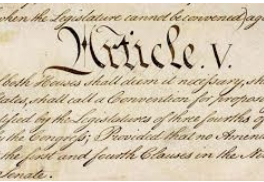 when the Legislature cannot be convened) aga
Article. V.
both Houses shall deem it necessary, sh
ates, shall call a Convention for propos
ified by the Legislatures of three fourths of
y the Congress; Provided that no Amend
the first and fourth Clauses in the Ni
Senate.